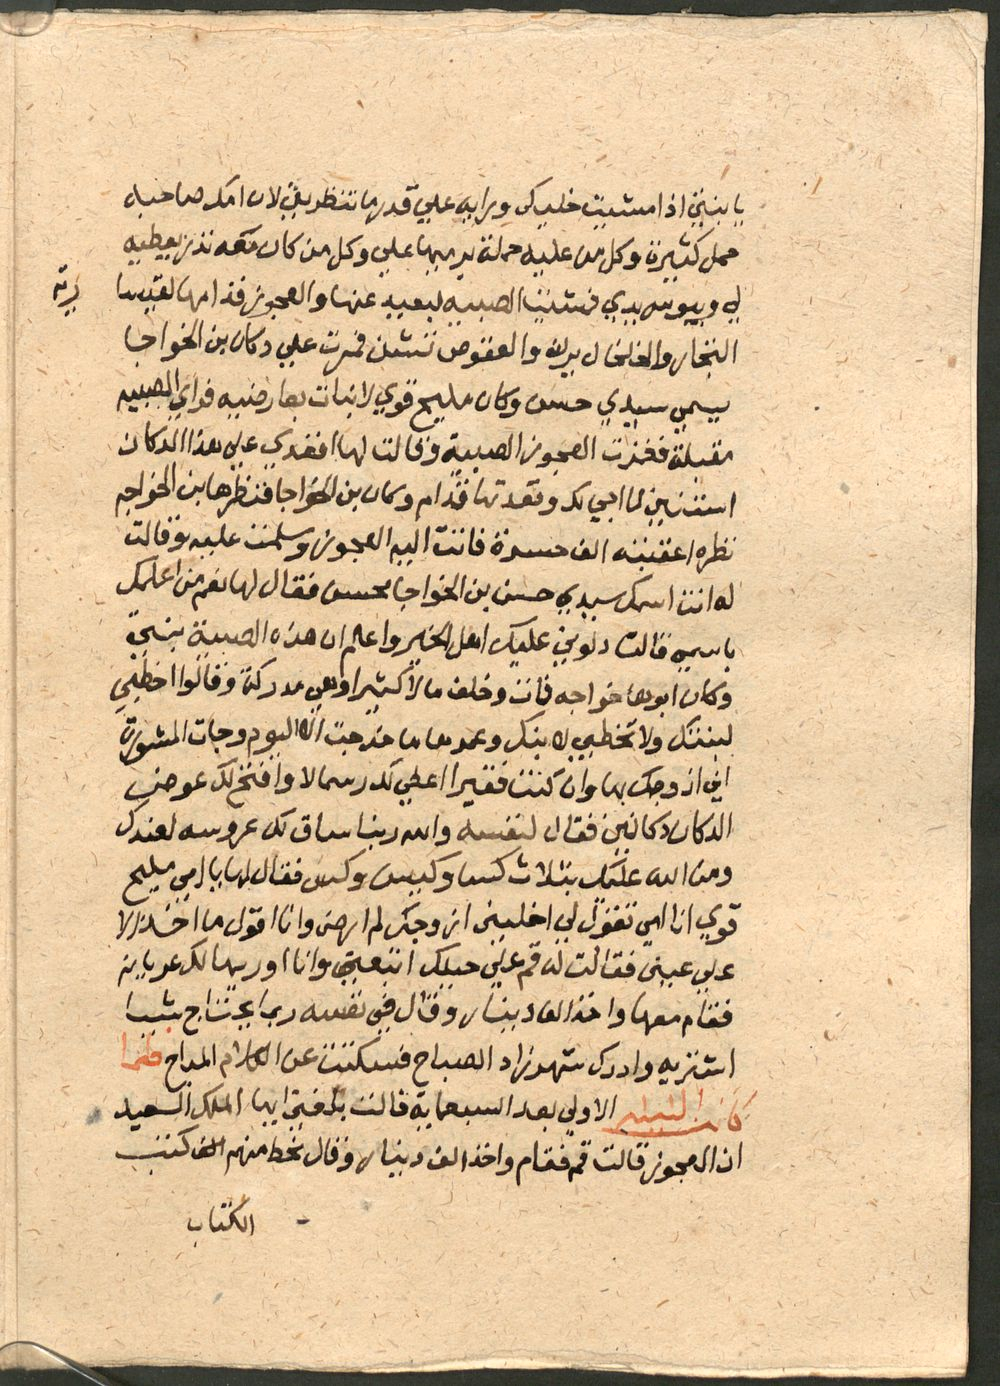 يا بنتي اذا مشيت خليكي ورايه علي قدرما تنظريني لان امك صاحبه
حمل كثيرة وكل من عليه حملة يرميها علي وكل من كان معه نذر يعطيه
لي ويبوس يدي فمشت الصبيه لبعيد عنها والعجوز قدامها لقيسا
رية
التجار والخلخال يرن والعقوص تشن فمرت علي دكان بن الخواجا
يسمي سيدي حسن وكان مليح قوي لا نبات بعارضيه فراي الصبيه
مقبلة فغمزت العجوز الصبية وقالت لها اقعدي علي هذا الدكان
استنيني لما اجي لك وقعدتها قدام دكان بن الخواجا فنظرها بن الخواجه
نظره اعقبته الف حسرة فاتت اليه العجوز وسلمت عليه وقالت
له انت اسمك سيدي حسن بن الخواجا محسن فقال لها نعم من اعلمك
باسمي قالت دلوني عليك اهل الخير واعلم ان هذه الصبية بنتي
وكان ابوها خواجه فات وخلف مالا كثيرا وهي مدركة وقالوا اخطبي
لبنتك ولا تخطبي لابنك وعمرها ما خرجت الا اليوم وجات المشورة
اني ازوجك بها وان كنت فقيرا اعطي لك رسمالا وافتح لك عوض
الدكان دكانين فقال لنفسه والله ربنا ساق لك عروسه لعندك
ومن الله عليك بثلاث كسا وكيس وكس فقال لها يا امي مليح
قوي انا امي تقول لي اخليني ازوجك لم ارضي وانا اقول ما اخذ الا
علي عيني فقالت له قم علي حيلك اتبعني وانا اوريها لك عريانه
فقام معها واخذ الف دينار وقال في نفسه ربما يحتاج شيا
اشتريه وادرك شهرزاد الصباح فسكتت عن الكلام المباح فلما
كانت الليلة الاولي بعد السبعماية قالت بلغني ايها الملك السعيد
ان العجوز قالت قم فقام واخذ الف دينار وقال نحط منهم الف كتب
الكتاب